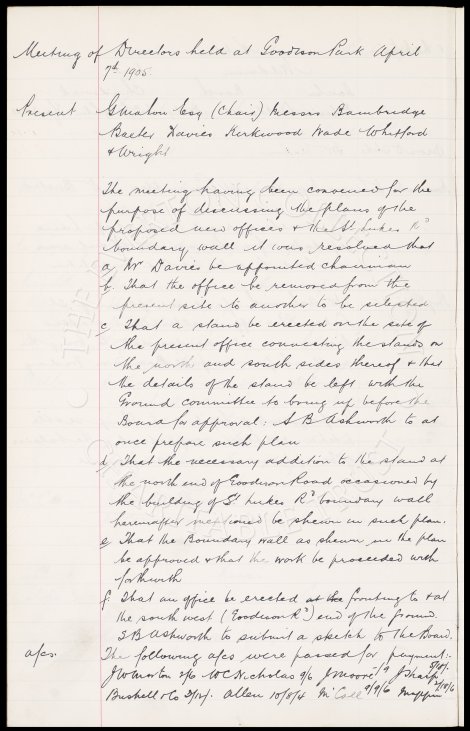 Meeting of Directors held at Goodison Park April
7th 1905
Present G Mahon Esq (Chair) Messrs Bainbridge
Baxter Davies Kirkwood Wade Whitford
& Wright
The meeting having been convened for the
purpose of discussing the plans of the
proposed new offices & the St Lukes Rd
boundary wall it was resolved that
a, Mr Davies be appointed chairman
b. That the office be removed from the
present site to another to be selected
c, That a stand be erected on the site of
the present office connecting the stands on
the north and south sides thereof & that
the details of the stand be left with the
Ground committee to bring up before the
Board for approval: S B Ashworth to at
once prepare such plan
d, That the necessary addition to the stand at
the north end of Goodison Road occasioned by
the building of St Lukes Rd boundary wall
hereafter mentioned be shewn in such plan.
e, That the Boundary wall as shewn in the plan
be approved & that the work be proceeded with
forthwith
f. That an office be erected at the fronting to & at
the south west (Goodison Rd) end of the ground.
S B Ashworth to submit a sketch to the Board.
a/cs. The following a/cs were passed for payment:-
J W Morton 2/6 W C Nicholas 9/6 J Moore J Sharp
Bushell & Co Allen 10/8/4 McCall 2/9/6